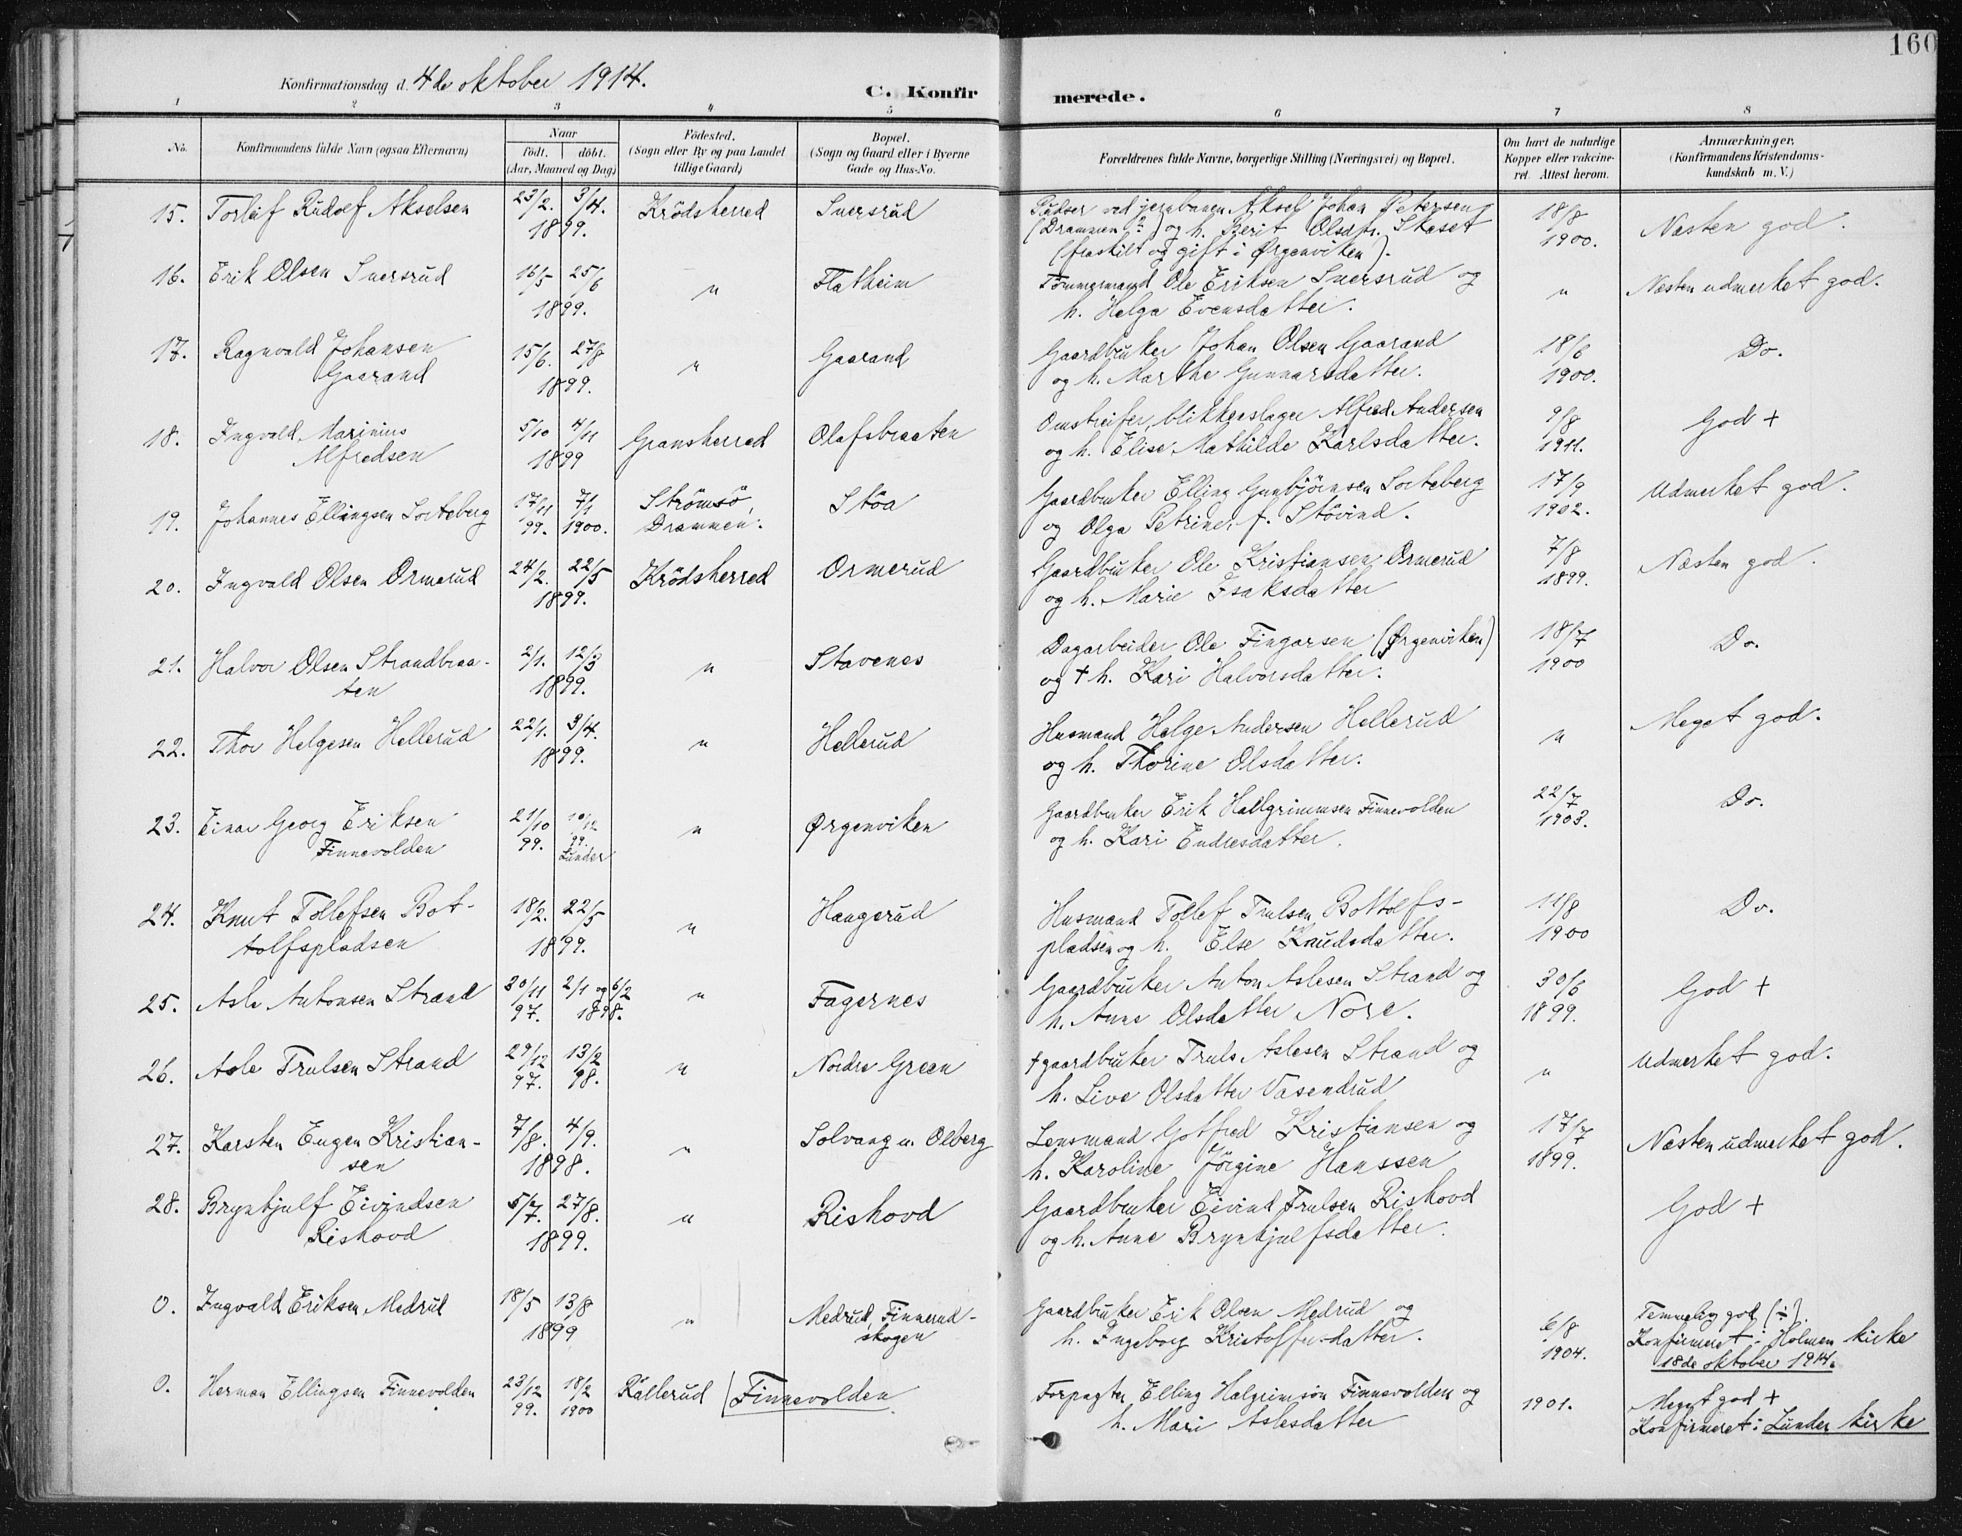 160
Konfirmationsdag d. 4de oktober 1914.
C. Konfirmerede.
1 2 3 4 5 6 7 8
No.
Konfirmandens fulde Navn (ogsaa Efternavn)
Naar
født. døbt.
(Aar, Maaned og Dag)
Fødested.
(Sogn eller By og paa Landet
tillige Gaard)
Bopæl.
(Sogn og Gaard eller i Byerne
Gade og Hus-No.
Forældrenes fulde Navne, borgerlige Stilling (Næringsvei) og Bopæl.
Om havt de naturlige
Kopper eller vakcine-
ret. Attest herom.
Anmærkninger.
(Konfirmandens Kristendoms-
kundskab m. V.)
15. Torleif Rudolf Akselsen 23/2. 3/4. Krödsherred Snersrud Pudser ved jernbanen Aksel Johan Petersen 18/8 Næsten god.
1899. (Drammen) og h. Berit Olsdtr. Skaset 1900.
(fraskilt og gift i Ørgenviken).
16. Erik Olsen Snersrud 16/5 25/6 " Flatheim Tømmermand Ole Eriksen Snersrud og " Næsten udmerket god.
1899. h. Helga Evensdatter.
17. Ragnvald Johansen 15/6. 27/8 " Gaarand Gaardbruker Johan Olsen Gaarand 18/6 Do.
Gaarand 1899. og h. Marthe Gunnarsdatter. 1900.
18. Ingvald Marinius 5/10 4/11 Gransherred Olafsbraaten Omstreifer, blikkenslager Alfred Andersen 9/8 God +
Alfredsen 1899 og h. Elise Mathilde Karlsdatter. 1911.
19. Johannes Ellingsen Sorteberg 17/11 7/1 Strömsö, Stöa Gaardbruker Elling Gunbjörnsen Sorteberg 17/9 Udmerket god.
99. 1900. Drammen. og Olga Petrine, f. Stövind. 1902.
20. Ingvald Olsen Ormerud 24/2. 22/5 Krödsherred Ormerud Gaardbruker Ole Kristiansen Ormerud 7/8 Næsten god.
1899. og h. Marie Isaksdatter 1899.
21. Halvor Olsen Strandbraa- 2/1. 12/3 " Stavenes Dagarbeider Ole Fingarsen (Ørgenviken) 18/7 Do.
ten 1899. og + h. Kari Halvorsdatter. 1900
22. Thor Helgesen Hellerud 22/1. 3/4. " Hellerud Husmand Helge Andersen Hellerud " Meget god.
1899. og h. Thorine Olsdatter.
23. Einar Georg Eriksen 21/10 10/12 " Ørgenviken Gaardbruker Erik Hallgrimmsen Finnevolden 22/7 Do.
Finnevolden 99. 99. Lunder og h. Kari Endresdatter. 1903.
24. Knut Tollefsen Bot- 18/2. 22/5 " Haugerud Husmand Tollef Trulsen Bottolfs- 11/8 Do.
tolfspladsen 1899. pladsen og h. Else Knudsdatter. 1900
25. Asle Antonsen Strand 30/11 2/1 og 6/2 " Fagernes Gaardbruker Anton Aslesen Strand og 30/6 God +
97. 1898. h. Anne Olsdatter Nore. 1899.
26. Asle Trulsen Strand 29/12 13/2 " Nordre Green + gaardbruker Truls Aslesen Strand og " Udmerket god.
97. 98. h. Live Olsdatter Vasendrud
27. Karsten Eugen Kristian- 7/8. 4/9. " Solvang u. Olberg Lensmand Gotfred Kristiansen og 17/7 Næsten udmerket god.
sen 1898. h. Karoline Jörgine Hanssen 1899.
28. Brynhjulf Eivindsen 5/7. 27/8. " Rishovd Gaardbruker Eivind Trulsen Rishovd God +
Rishovd 1899. og h. Anne Brynhjulfsdatter.
0. Ingvald Eriksen Medrud 18/5 13/8 " Medrud, Finnerud- Gaardbruker Erik Olsen Medrud og 6/8 Temmelig god (÷).
1899 skogen h. Ingeborg Kristoffersdatter. 1904. Konfirmeret i Holmen kirke
18de oktober 1914.
0. Herman Ellingsen Finnevolden 23/12 18/2 Kallerud Finnevolden Forpagter Elling Halgrimsøn Finnevolden og 1901. Meget god +
99. 1900 h. Mari Aslesdatter Konfirmeret i Lunder kirke